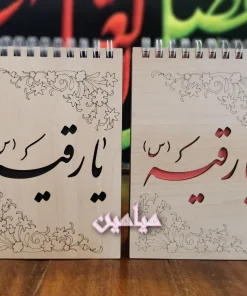 یا رقیه (س)
یا رقیه (س)
میلمین